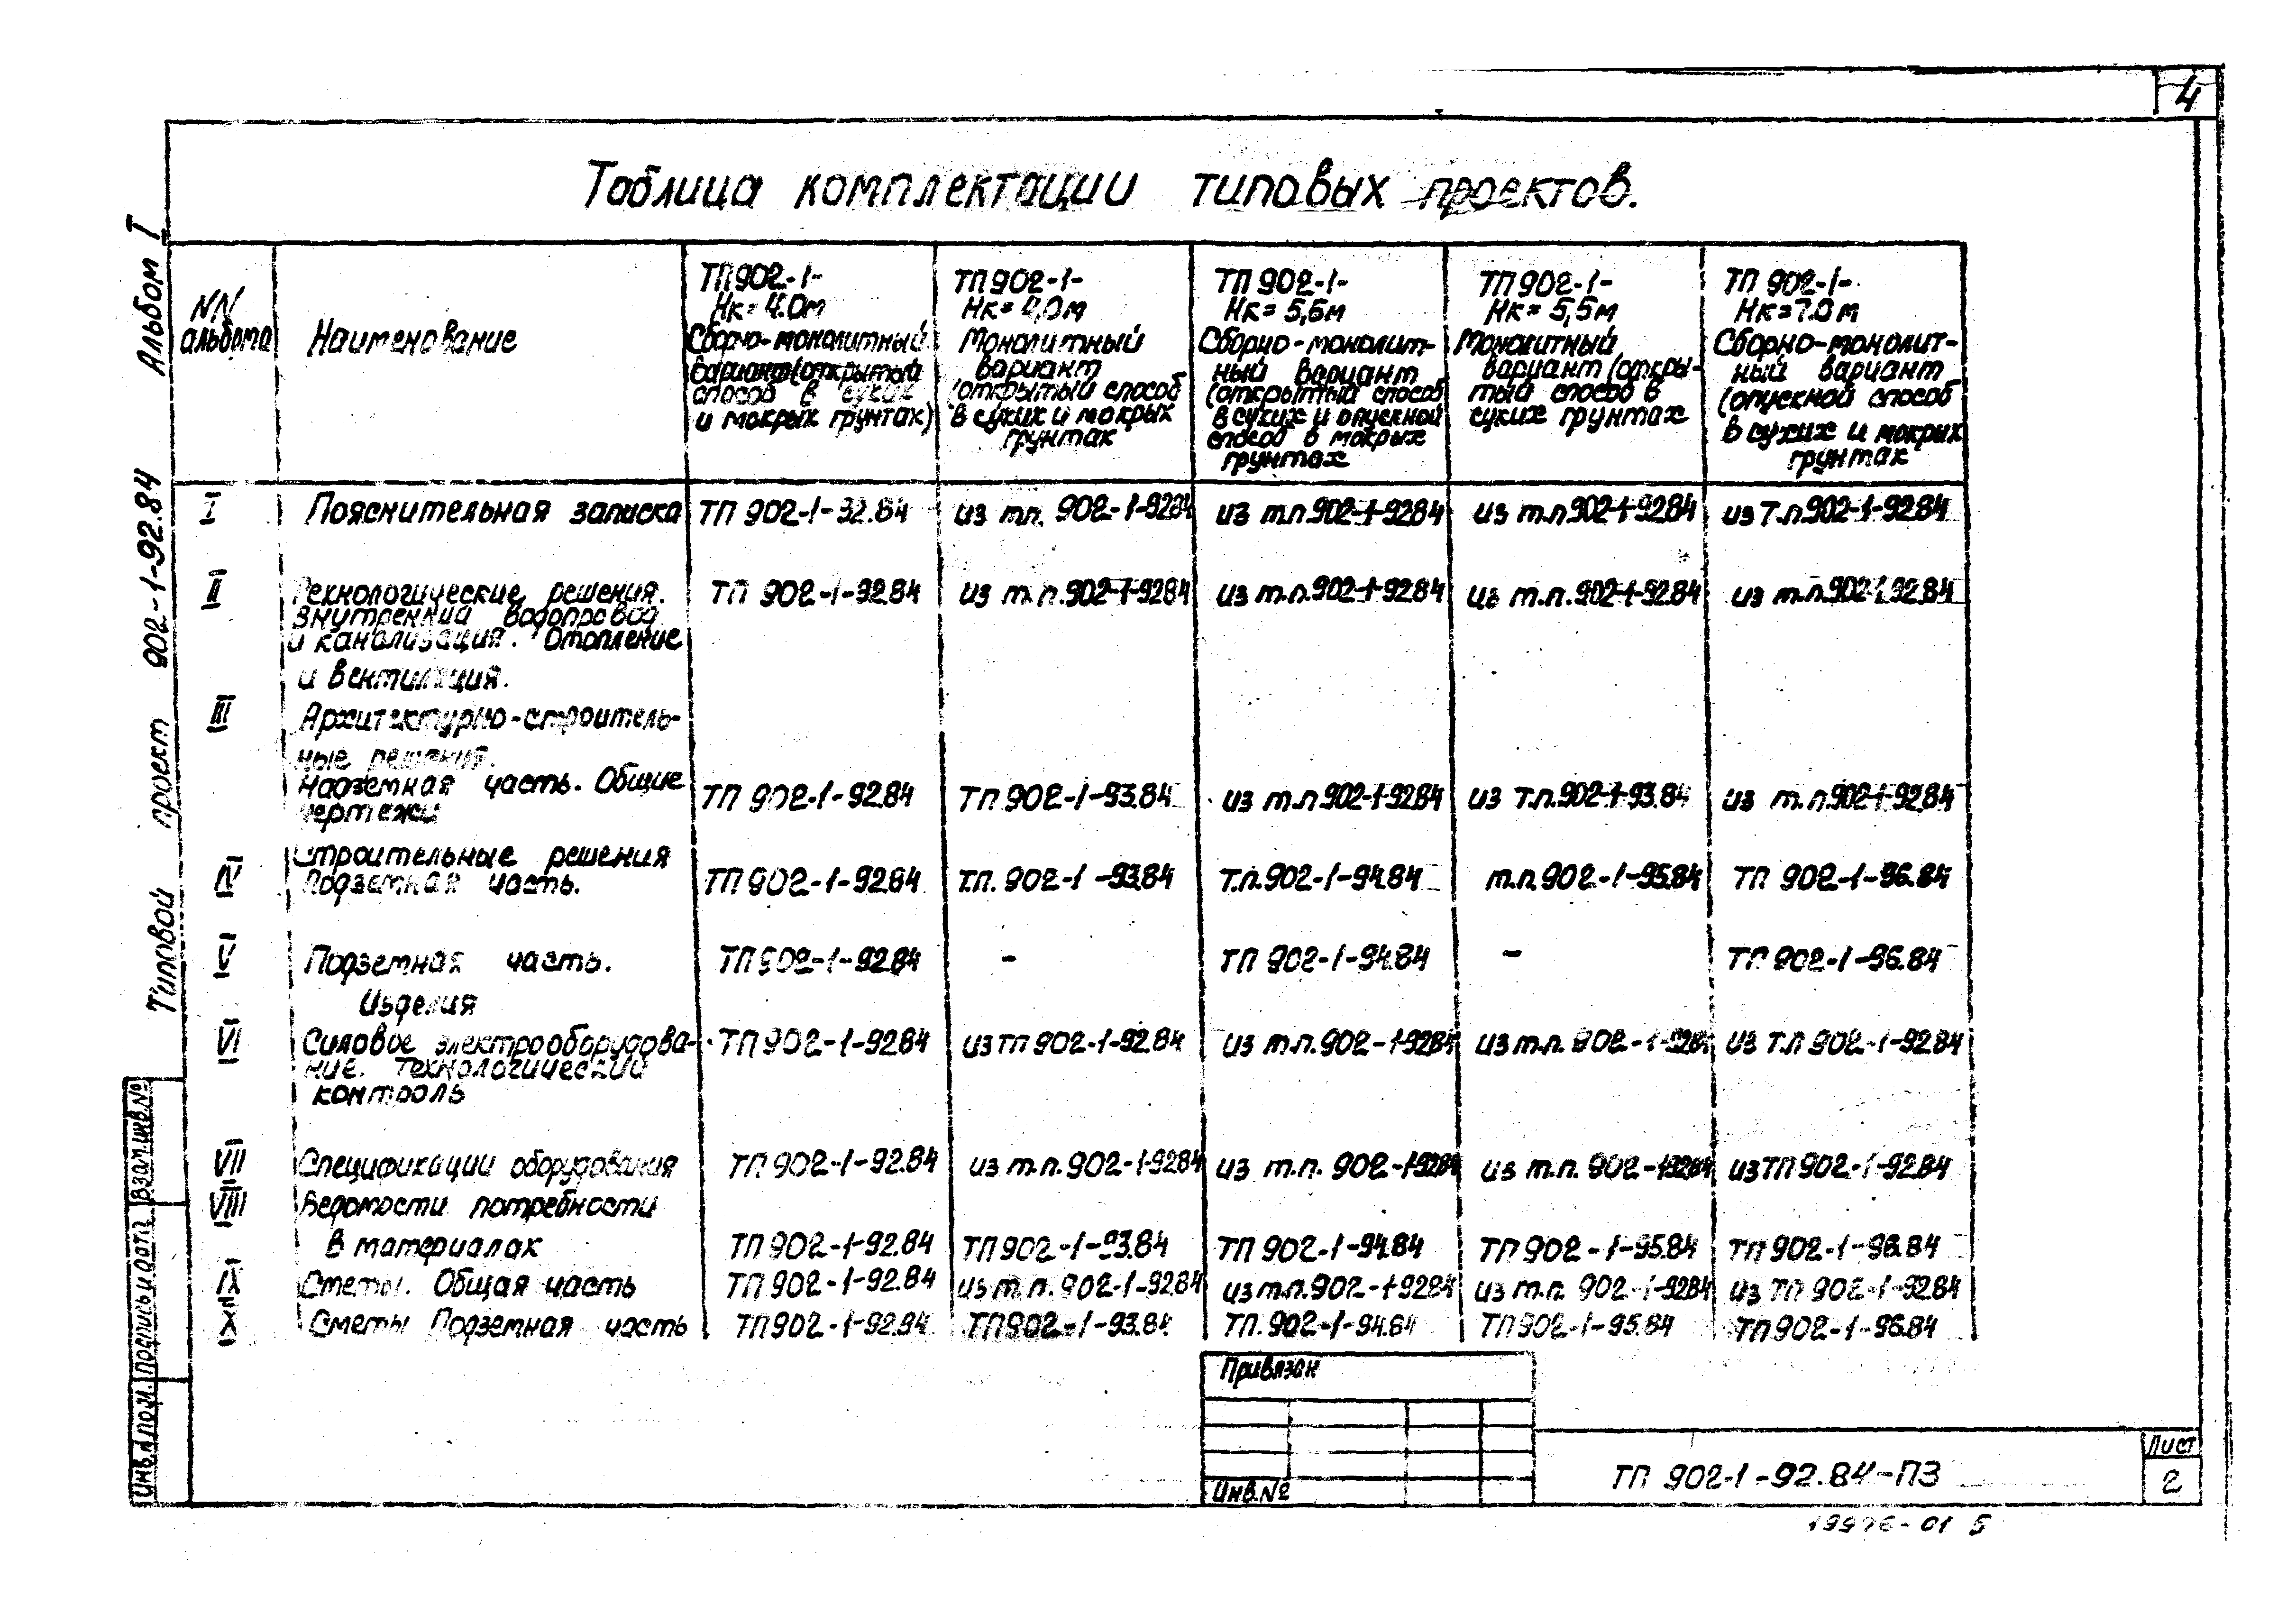 4
Таблица комплектации типовых проектов.
Альбом I
Типовой проект 902-1-92.84
NN альбома
Наименование
ТП 902-1-
Нк = 4.0м
Сборно-монолитный
вариант (открытый
способ в сухих
и мокрых грунтах)
ТП 902-1-
Нк = 4,0м
Монолитный
вариант
(открытый способ
в сухих и мокрых
грунтах
ТП 902-1-
Нк = 5,5м
Сборно-монолит-
ный вариант
(открытый способ
в сухих и опускной
способ в мокрых
грунтах
ТП 902-1-
Нк = 5,5м
Монолитный
вариант (откры-
тый способ в
сухих грунтах
ТП 902-1-
Нк = 7.0м
Сборно-монолит-
ный вариант
(опускной способ
в сухих и мокрых
грунтах
I Пояснительная записка ТП 902-1-92.84 из т.п. 902-1-92.84 из т.п. 902-1-92.84 из т.п. 902-1-92.84 из т.п. 902-1-92.84
II Технологические решения. ТП 902-1-92.84 из т.п. 902-1-92.84 из т.п. 902-1-92.84 из т.п. 902-1-92.84 из т.п. 902-1-92.84
Внутренний водопровод
и канализация. Отопление
и вентиляция.
III Архитектурно-строитель-
ные решения.
Надземная часть. Общие
чертежи ТП 902-1-92.84 ТП 902-1-93.84 из т.п. 902-1-92.84 из т.п. 902-1-93.84 из т.п. 902-1-92.84
Строительные решения
IV Подземная часть. ТП 902-1-92.84 т.п. 902-1-93.84 т.п. 902-1-94.84 т.п. 902-1-95.84 ТП 902-1-96.84
V Подземная часть. ТП 902-1-92.84 - ТП 902-1-94.84 - ТП 902-1-96.84
Изделия
VI Силовое электрооборудова- ТП 902-1-92.84 из ТП 902-1-92.84 из т.п. 902-1-92.84 из т.п. 902-1-92.84 из т.п 902-1-92.84
ние. Технологический
контроль
VII Спецификации оборудования ТП 902-1-92.84 из т.п. 902-1-92.84 из т.п. 902-1-92.84 из т.п. 902-1-92.84 из ТП 902-1-92.84
VIII Ведомости потребности
в материалах ТП 902-1-92.84 ТП 902-1-93.84 ТП 902-1-94.84 ТП 902-1-95.84 ТП 902-1-96.84
IX Сметы. Общая часть ТП 902-1-92.84 из т.п. 902-1-92.84 из т.п. 902-1-92.84 из т.п. 902-1-92.84 из ТП 902-1-92.84
X Сметы Подземная часть ТП 902-1-92.84 ТП 902-1-93.84 ТП. 902-1-94.84 ТП 902-1-95.84 ТП 902-1-96.84
Взам.инв.№
Подпись и дата
Инв.№ подл.
Привязан
Инв.№
ТП 902-1-92.84-ПЗ
Лист
2
19976-01 5